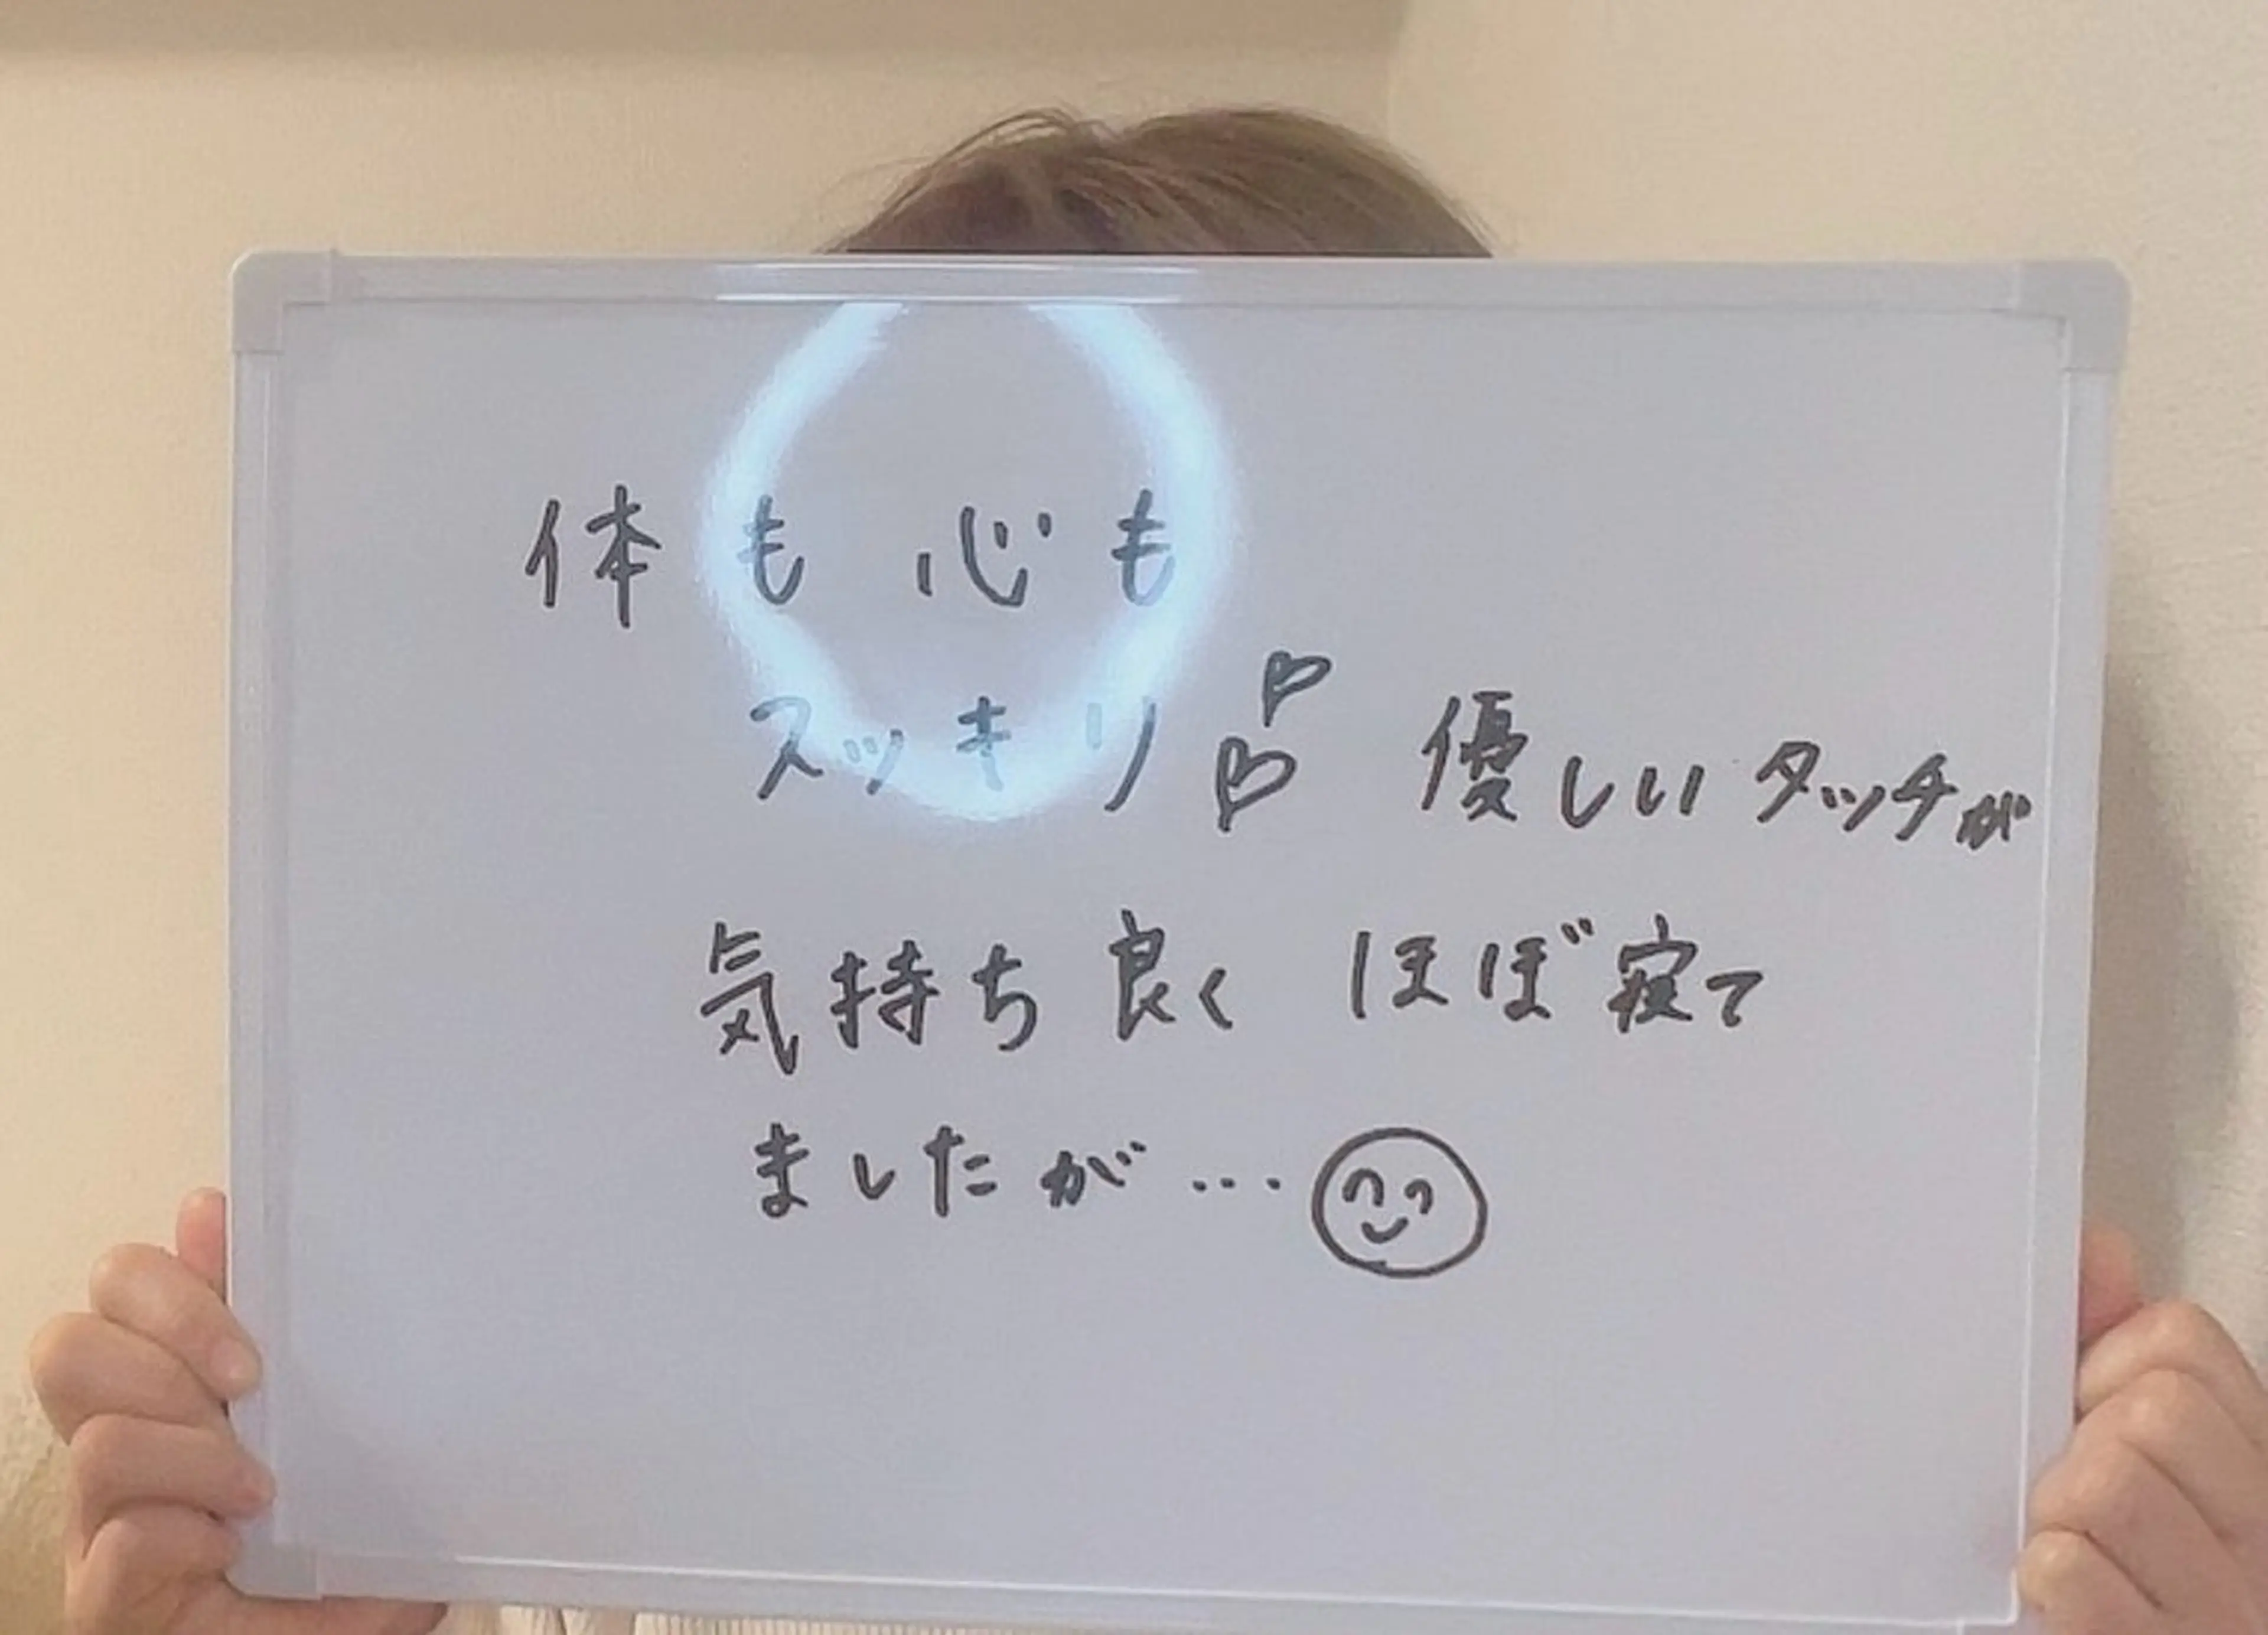 体も 心も
スッキリ♡♡ 優しいタッチが
気持ち良く ほぼ寝て
ましたが…